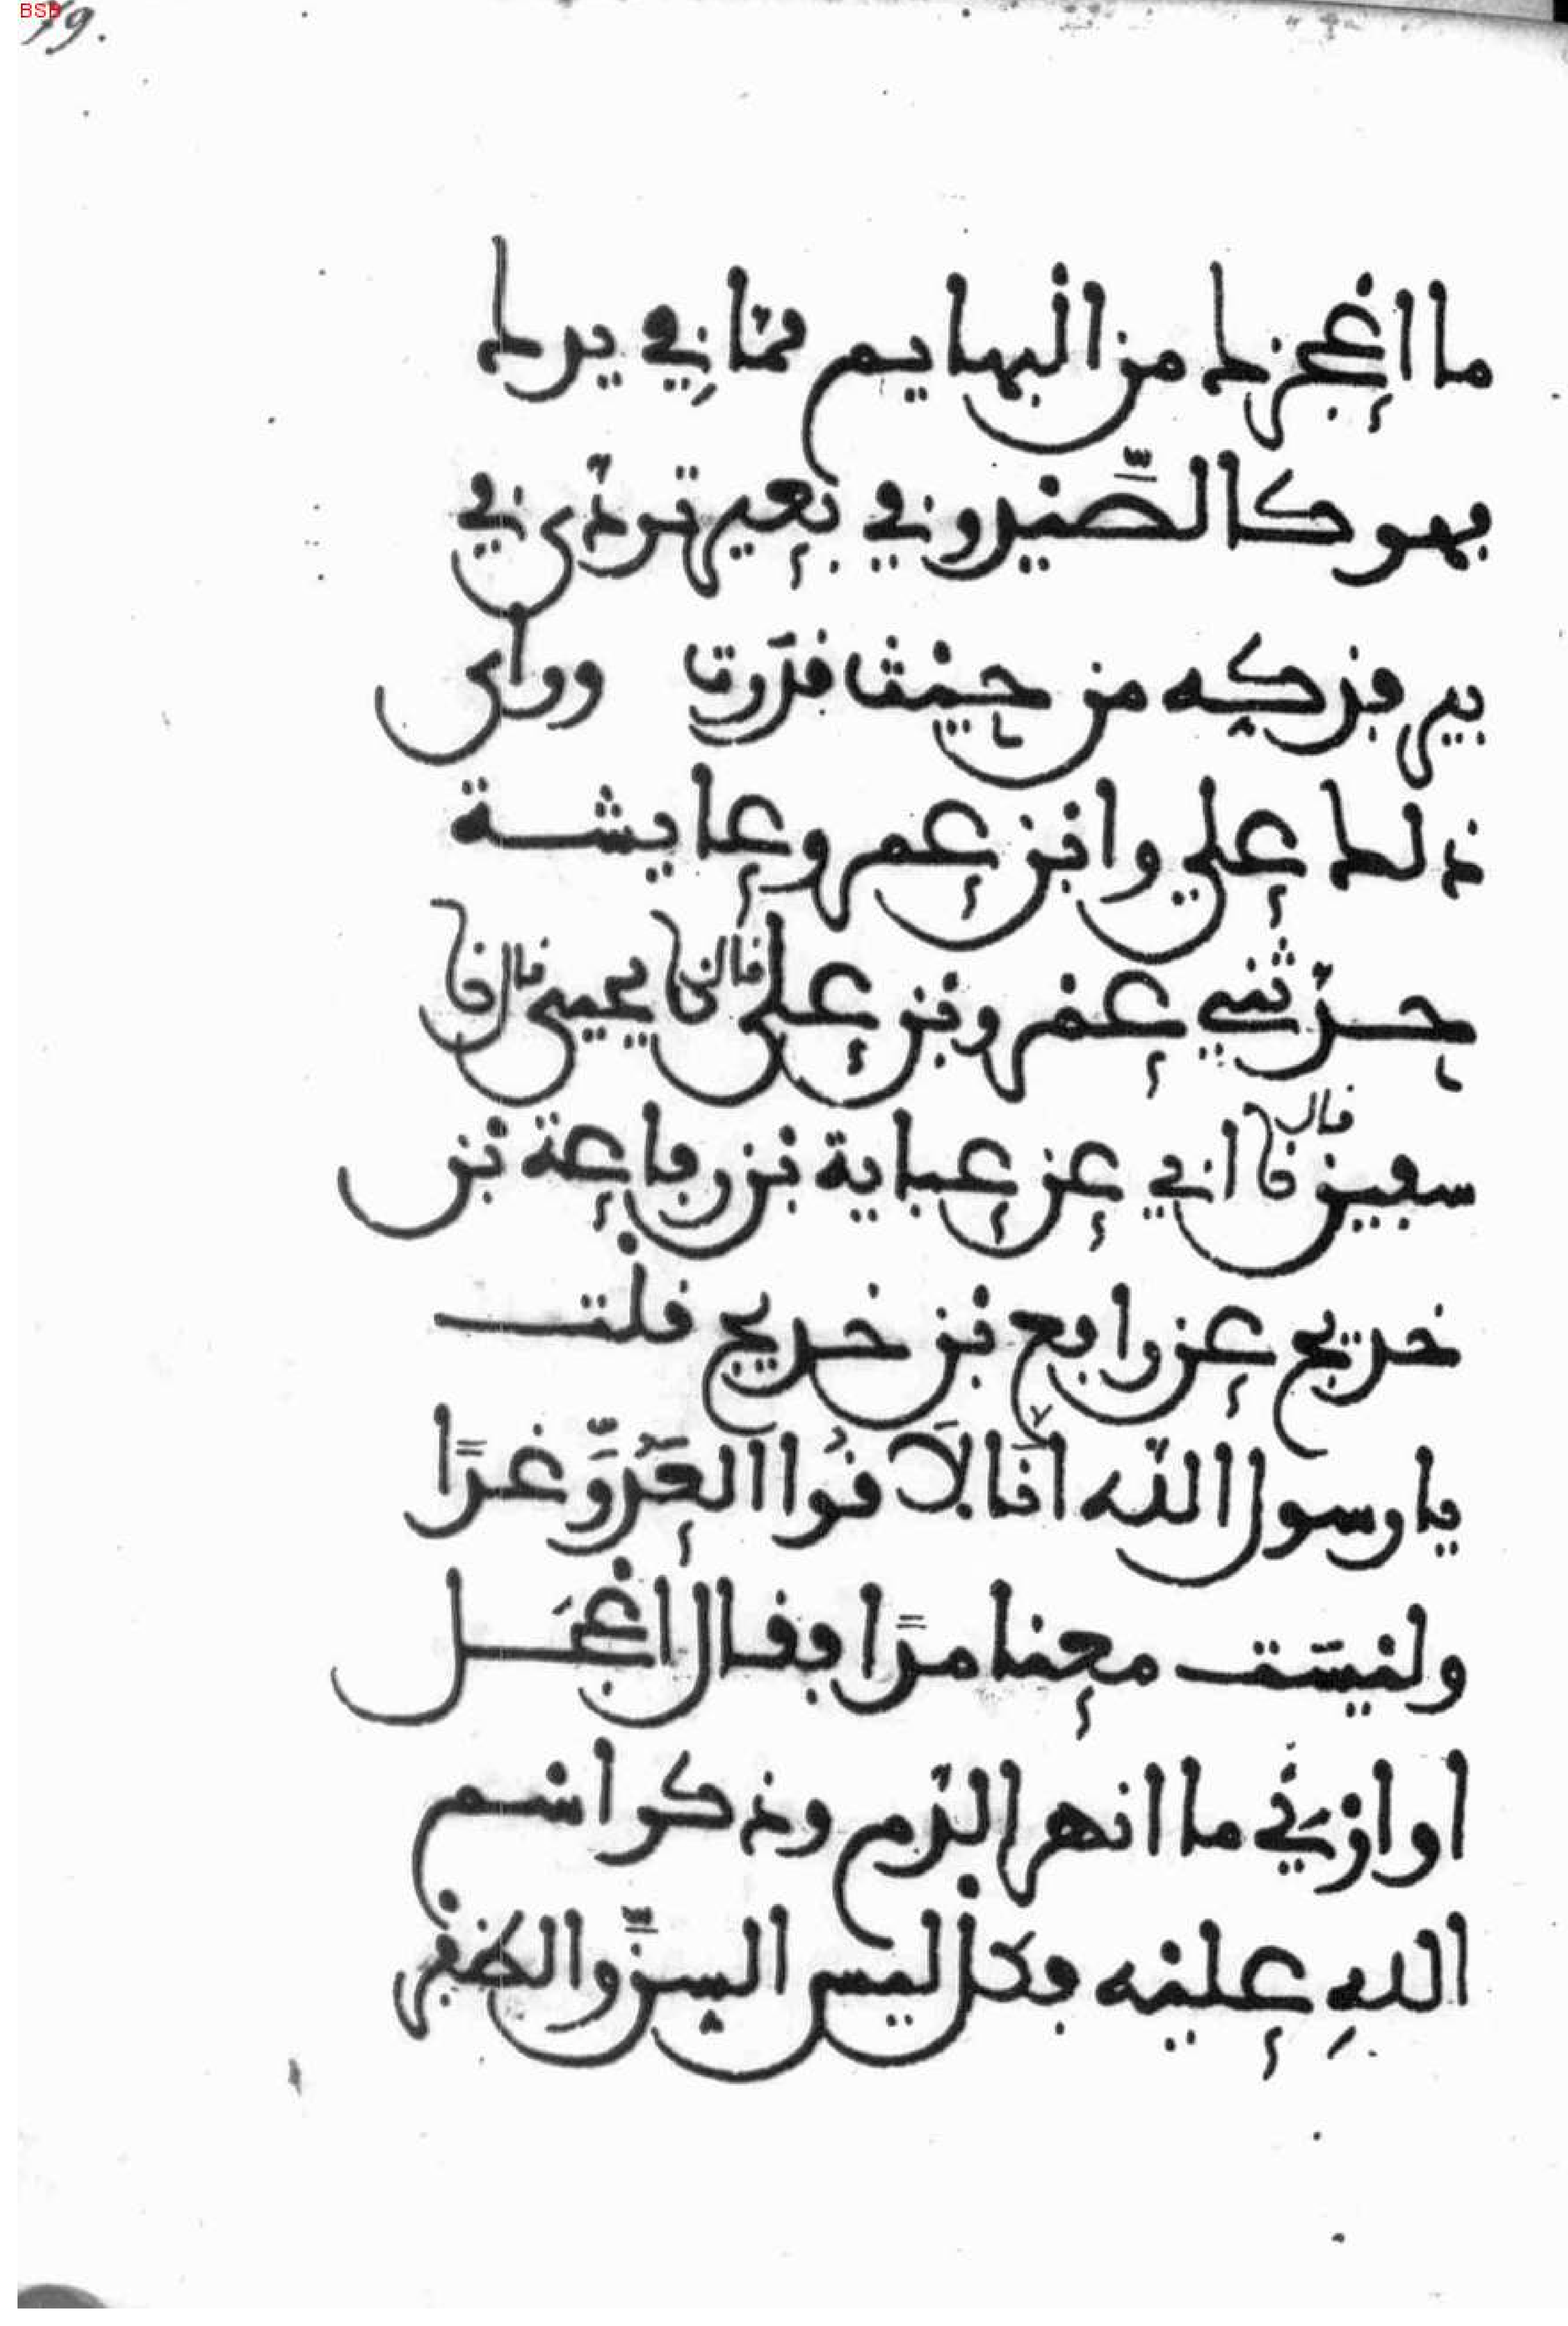 79.
ما اعجزك من البهايم مما في يديك
فهو كالصَّيد وفي بعير تردّى في
بير فذكه من حيث قدرت ورأى
ذلك علي وابن عمر وعايشة
حدّثني عمرو بن علي قال نا يحيى قال نا
سفين قال نا ابي عن عباية بن رفاعة بن
خديج عن رافع بن خديج قلت
يا رسول الله انّا لَاقُوا العَدُوَّ غدًا
وليسَت معنا مدًا فقال اعجَل
او ارني ما انهر الدّم وذكر اسم
اللهِ عليه فكل ليس السِّنَّ والظفر